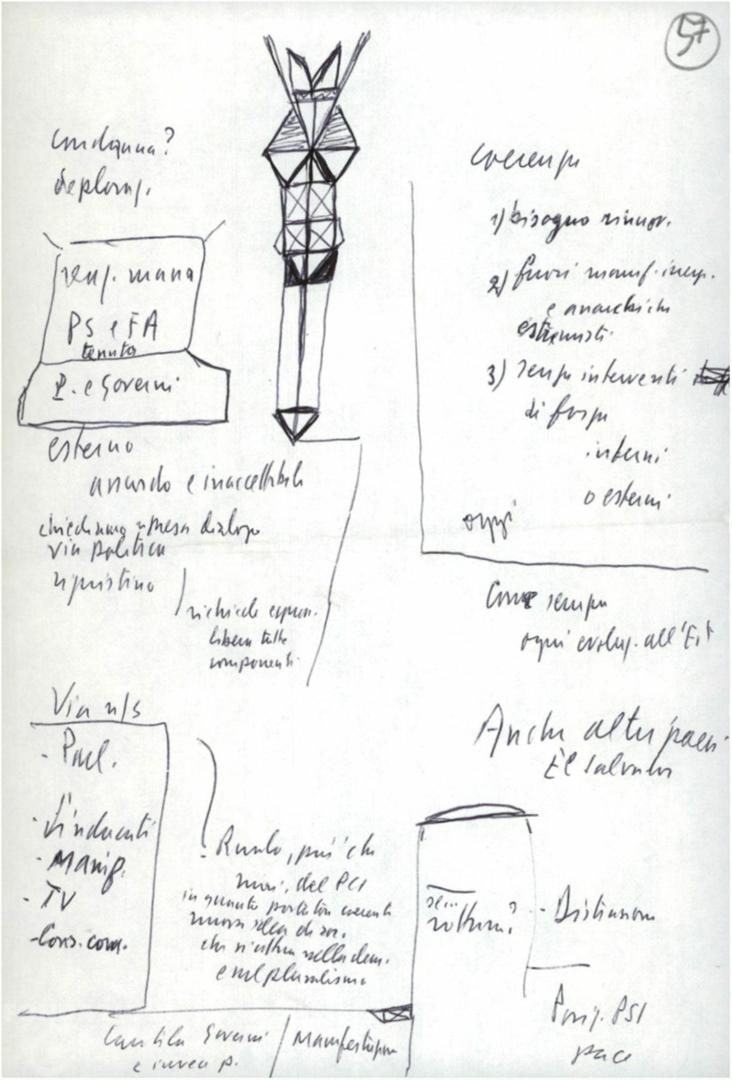 57
condanna?
deploraz.
PS e FA
tenuta
P. e Governi
esterno
assurdo e inaccettabile
chiediamo ripresa dialogo
via politica
ripristino
richiede
libera tutte
componenti
coerenza
1) bisogno rinnov.
2) fuori
e anarchiche
estremisti
3) senza interventi
di forza
interni
o esterni
oggi
Come sempre
ogni all'Est
Anche altri paesi
El Salvador
Via n/s
- Parl.
- Sindacati
- Manif.
- TV
- Cons. com.
Ruolo, più che
mai, del PCI
in quanto portatore coerente
nuova idea di soc.
che si attua nella dem.
e nel pluralismo
se...
rottura?
- Distensione
Posiz. PSI
pace
Governi
Manifestazione